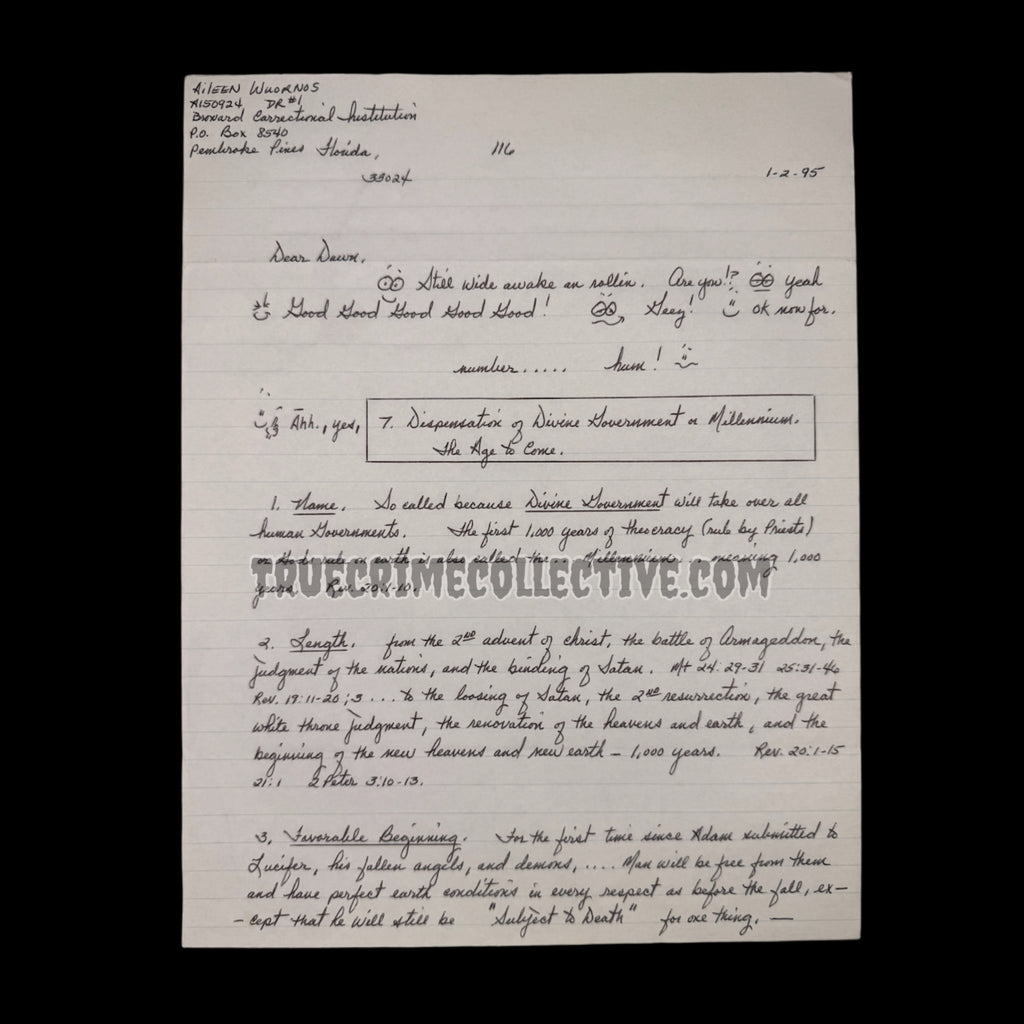 AilEEN WUORNOS
A150924 DR#1
Broward Correctional Institution
P.O. Box 8540
Pembroke Pines Florida,
116
33024
1-2-95
Dear Dawn,
Still wide awake an rollin. Are you!? yeah
Good Good Good Good Good! Geey! OK now for.
number..... hum!
Ahh., yes,
7. Dispensation of Divine Government or Millennium.
The Age to Come.
1. Name. So called because Divine Government will take over all
human Governments. The first 1,000 years of theocracy (rule by Priests)
or God's rule on earth is also called the... Millennium... meaning 1,000
years. Rev. 20:1-10.
TRUECRIMECOLLECTIVE.COM
2. Length. from the 2ND advent of christ, the battle of Armageddon, the
judgment of the nations, and the binding of Satan. Mt 24:29-31 25:31-46
Rev. 19:11-20;3... to the loosing of Satan, the 2ND resurrection, the great
white throne judgment, the renovation of the heavens and earth, and the
beginning of the new heavens and new earth - 1,000 years. Rev. 20:1-15
21:1 2 Peter 3:10-13.
3. Favorable Beginning. For the first time since Adam submitted to
Lucifer, his fallen angels, and demons, .... Man will be free from them
and have perfect earth conditions in every respect as before the fall, ex-
-cept that he will still be "Subject to Death" for one thing. —